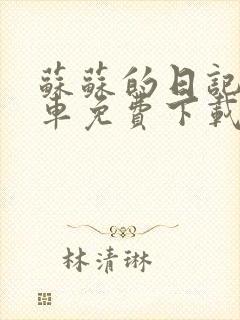 蘇蘇的日記
車免費下載
林清琳